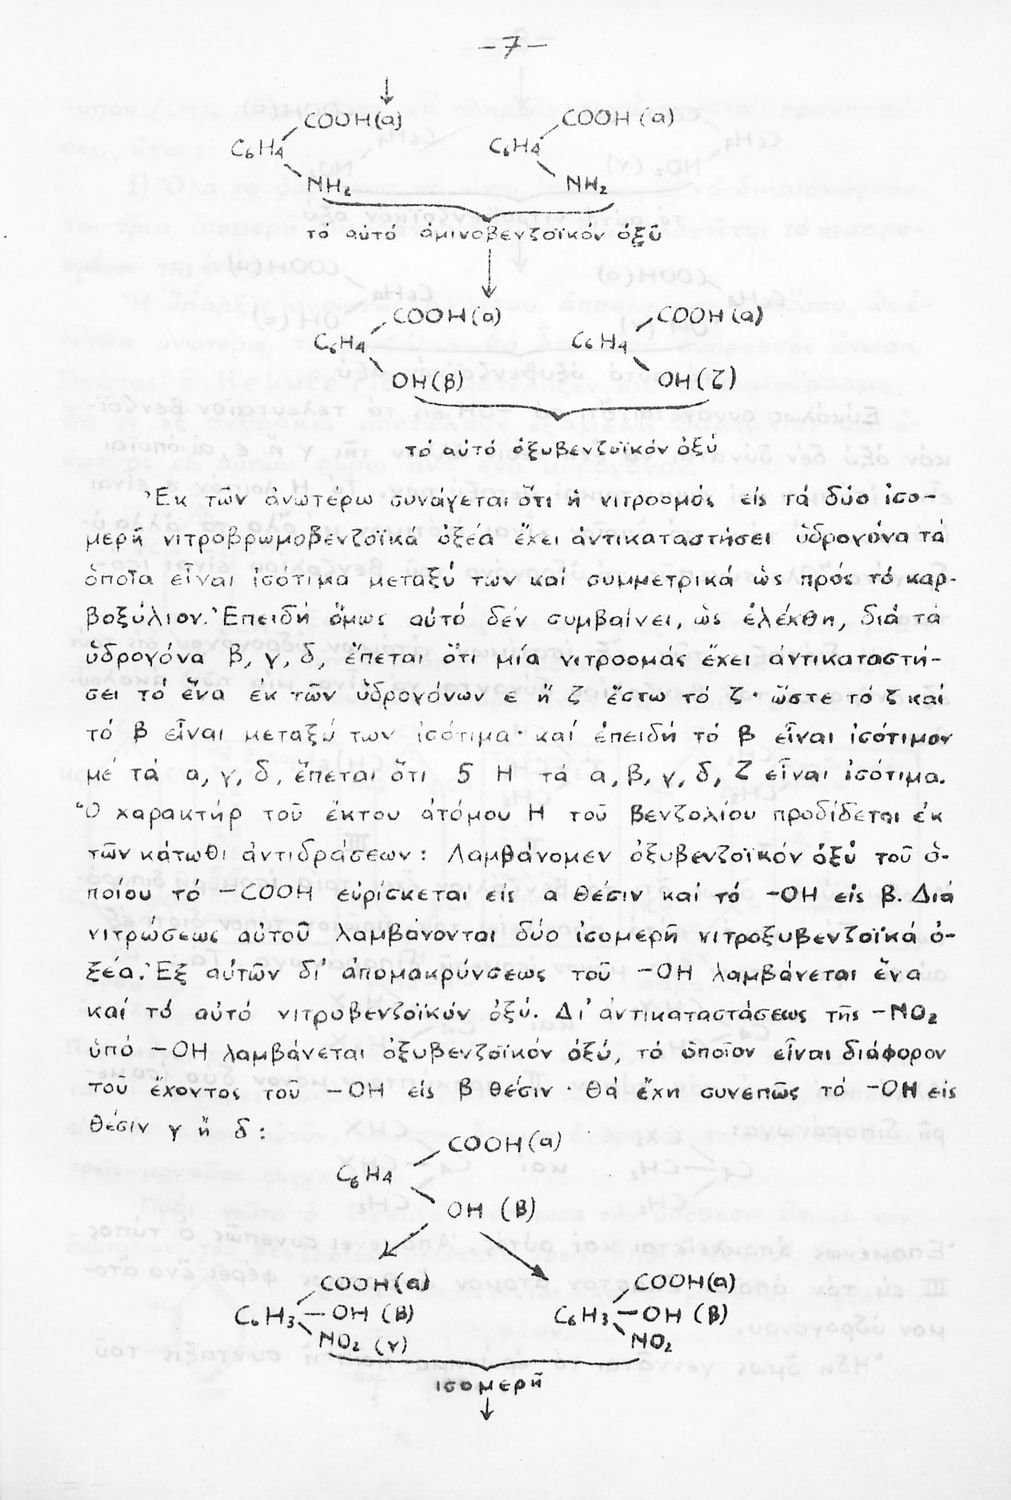 -7-
↓
COOH(α) COOH(α)
C₆H₄ C₆H₄
NH₂ NH₂
τό αὐτό ἀμινοβενζοϊκόν ὀξύ
↓
COOH(α) COOH(α)
C₆H₄ C₆H₄
OH(β) OH(ζ)
τό αὐτό ὀξυβενζοϊκόν ὀξύ
Ἐκ τῶν ἀνωτέρω συνάγεται ὅτι ἡ νιτροομάς εἰς τά δύο ἰσο-
μερῆ νιτροβρωμοβενζοϊκά ὀξέα ἔχει ἀντικαταστήσει ὑδρογόνα τά
ὁποῖα εἶναι ἰσότιμα μεταξύ των καί συμμετρικά ὡς πρός τό καρ-
βοξύλιον. Ἐπειδή ὅμως αὐτό δέν συμβαίνει, ὡς ἐλέχθη, διά τά
ὑδρογόνα β, γ, δ, ἕπεται ὅτι μία νιτροομάς ἔχει ἀντικαταστή-
σει τό ἕνα ἐκ τῶν ὑδρογόνων ε ἤ ζ ἔστω τό ζ· ὥστε τό ζ καί
τό β εἶναι μεταξύ των ἰσότιμα· καί ἐπειδή τό β εἶναι ἰσότιμον
μέ τά α, γ, δ, ἕπεται ὅτι 5 Η τά α, β, γ, δ, ζ εἶναι ἰσότιμα.
Ὁ χαρακτήρ τοῦ ἕκτου ἀτόμου Η τοῦ βενζολίου προδίδεται ἐκ
τῶν κάτωθι ἀντιδράσεων: Λαμβάνομεν ὀξυβενζοϊκόν ὀξύ τοῦ ὁ-
ποίου τό -COOH εὑρίσκεται εἰς α θέσιν καί τό -OH εἰς β. Διά
νιτρώσεως αὐτοῦ λαμβάνονται δύο ἰσομερῆ νιτροξυβενζοϊκά ὀ-
ξέα. Ἐξ αὐτῶν δι' ἀπομακρύνσεως τοῦ -OH λαμβάνεται ἕνα
καί τό αὐτό νιτροβενζοϊκόν ὀξύ. Δι' ἀντικαταστάσεως τῆς -NO₂
ὑπό -OH λαμβάνεται ὀξυβενζοϊκόν ὀξύ, τό ὁποῖον εἶναι διάφορον
τοῦ ἔχοντος τοῦ -OH εἰς β θέσιν· θά ἔχη συνεπῶς τό -OH εἰς
θέσιν γ ἤ δ:
COOH(α)
C₆H₄
OH (β)
COOH(α) COOH(α)
C₆H₃-OH (β) C₆H₃-OH (β)
NO₂ (γ) NO₂
ἰσομερῆ
↓